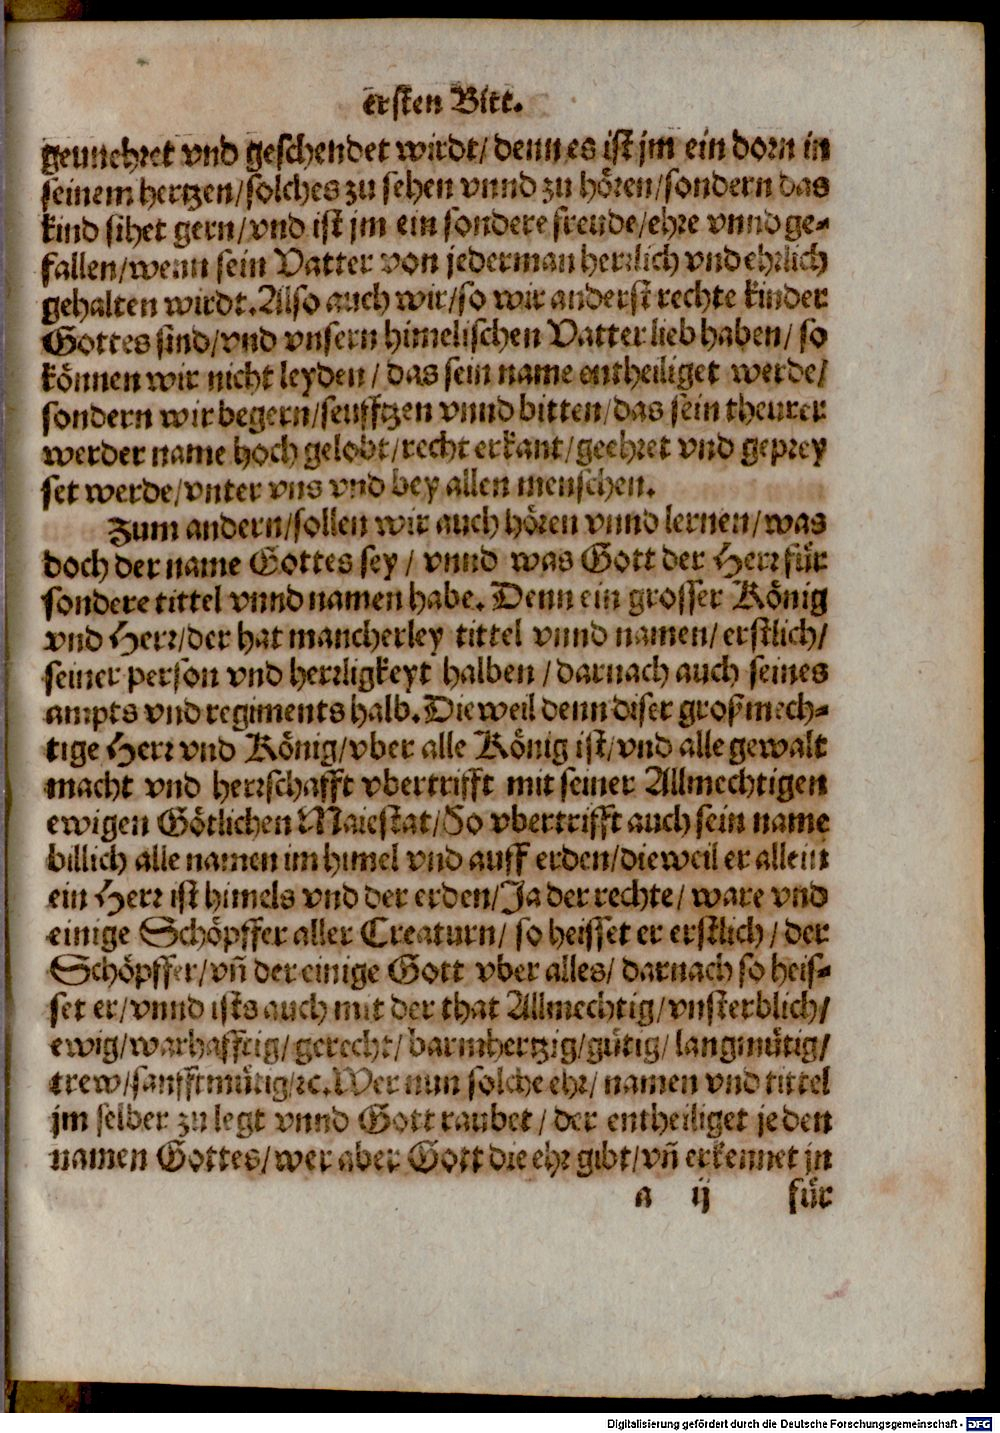 ersten Bitt.
geunehret vnd geschendet wirdt/ denn es ist jm ein dorn in
seinem hertzen/solches zu sehen vnnd zu hören/sondern das
kind sihet gern/vnd ist jm ein sondere freude/ehre vnnd ge-
fallen/wenn sein Vatter von jederman herrlich vnd ehrlich
gehalten wirdt. Also auch wir/so wir anderst rechte kinder
Gottes sind/vnd vnsern himelischen Vatter lieb haben/ so
können wir nicht leyden / das sein name entheiliget werde/
sondern wir begern/seufftzen vnnd bitten/das sein theurer
werder name hoch gelobt/recht erkant/geehret vnd geprey
set werde/vnter vns vnd bey allen menschen.
Zum andern/sollen wir auch hören vnnd lernen/was
doch der name Gottes sey / vnnd was Gott der Herr für
sondere tittel vnnd namen habe. Denn ein grosser König
vnd Herr/der hat mancherley tittel vnnd namen/ erstlich/
seiner person vnd herrligkeyt halben / darnach auch seines
ampts vnd regiments halb. Dieweil denn diser großmech-
tige Herr vnd König/vber alle König ist/vnd alle gewalt
macht vnd herrschafft vbertrifft mit seiner Allmechtigen
ewigen Götlichen Maiestat/So vbertrifft auch sein name
billich alle namen im himel vnd auff erden/dieweil er allein
ein Herr ist himels vnd der erden/Ja der rechte/ ware vnd
einige Schöpffer aller Creaturn/ so heisset er erstlich / der
Schöpffer/vn̄ der einige Gott vber alles/ darnach so heis-
set er/vnnd ists auch mit der that Allmechtig/vnsterblich/
ewig/warhafftig/gerecht/barmhertzig/gütig/ langmütig/
trew/sanfftmütig/ꝛc. Wer nun solche ehr/ namen vnd tittel
jm selber zu legt vnnd Gott raubet / der entheiliget je den
namen Gottes/wer aber Gott die ehr gibt/vn̄ erkennet jn
a ij für
Digitalisierung gefördert durch die Deutsche Forschungsgemeinschaft - DFG